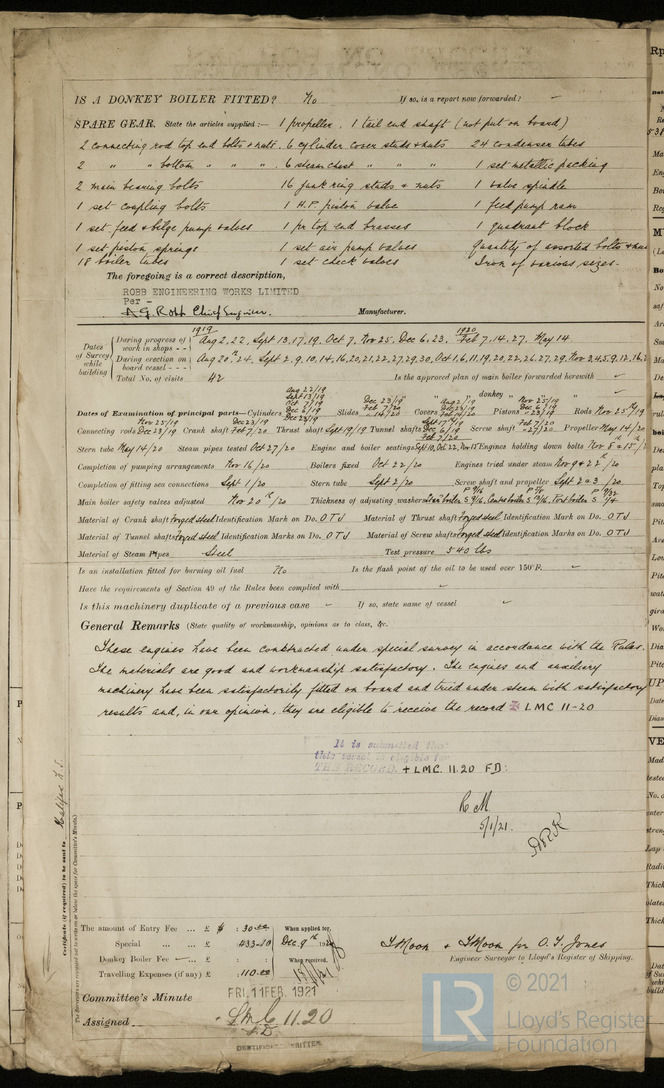 IS A DONKEY BOILER FITTED? No If so, is a report now forwarded? -
SPARE GEAR. State the articles supplied:— 1 propeller. 1 tail end shaft (not put on board)
2 connecting rod top end bolts & nuts. 6 cylinder cover studs & nuts 24 condenser tubes
2 " " bottom " " " . 6 steam chest " " " 1 set metallic packing
2 main bearing bolts 16 junk ring studs & nuts 1 valve spindle
1 set coupling bolts 1 H.P. piston valve 1 feed pump ram
1 set feed & bilge pump valves 1 pr top end brasses 1 quadrant block
1 set piston springs 1 set air pump valves Quantity of assorted bolts & nuts
18 boiler tubes 1 set check valves Iron of various sizes.
The foregoing is a correct description,
ROBB ENGINEERING WORKS LIMITED
Per -
A G. Robb Chief Engineer. Manufacturer.
1919 1920
Dates of Survey while building
During progress of work in shops - - Aug 2, 22, Sept 13, 17, 19. Oct 7, Nov 25. Dec 6, 23. Feb 7, 14. 27. May 14
During erection on board vessel - - - Aug 20th 24. Sept 2. 9. 10. 14. 16. 20. 21. 22. 27. 29. 30. Oct 1. 6. 11. 19. 20. 22. 26. 27. 29. Nov 2. 4. 5. 9. 12. 16.
Total No. of visits 42 Is the approved plan of main boiler forwarded herewith -
" " donkey " " " -
Dates of Examination of principal parts—Cylinders Aug 22/19 Sept 13/19 Oct 7/19 Dec 6/19 Dec 23/19 Slides Dec 23/19 Feb 14/20 Covers Pistons Rods Nov 25th/19
Connecting rods Nov 25/19 Dec 23/19 Crank shaft Dec 23/19 Feb 7/20 Thrust shaft Sept 19/19 Tunnel shafts Sept 17th/19 Dec 6/19 Feb 7/20 Screw shaft Feb 7/20 - 27/20 Propeller May 14/20
Stern tube May 14/20 Steam pipes tested Oct 27/20 Engine and boiler seatings Sept 10, Oct 22, Nov 15 Engines holding down bolts Nov 8th & 15th
Completion of pumping arrangements Nov 16/20 Boilers fixed Oct 22/20 Engines tried under steam Nov 9 & 22nd/20
Completion of fitting sea connections Sept 1/20 Stern tube Sept 2/20 Screw shaft and propeller Sept 2 & 3 /20
Main boiler safety valves adjusted Nov 20th/20 Thickness of adjusting washers
Material of Crank shaft Forged steel Identification Mark on Do. OTJ Material of Thrust shaft Forged steel Identification Mark on Do. OTJ
Material of Tunnel shafts Forged steel Identification Marks on Do. OTJ Material of Screw shafts Forged steel Identification Marks on Do. OTJ
Material of Steam Pipes Steel Test pressure 540 lbs
Is an installation fitted for burning oil fuel No Is the flash point of the oil to be used over 150°F. -
Have the requirements of Section 49 of the Rules been complied with -
Is this machinery duplicate of a previous case - If so, state name of vessel -
General Remarks (State quality of workmanship, opinions as to class, &c.
These engines have been constructed under special survey in accordance with the Rules.
The materials are good and workmanship satisfactory. The engines and auxiliary
machinery have been satisfactorily fitted on board and tried under steam with satisfactory
results and, in our opinion, they are eligible to receive the record ✠ LMC 11-20
It is submitted that
this vessel is eligible for
THE RECORD. + LMC. 11.20 FD:
R M.
5/1/21.
Halifax N.S.
Certificate (if required) to be sent to
The Surveyors are requested not to write on or below the space for Committee's Minute.
The amount of Entry Fee ... £ $ : 30.00 When applied for.
Special ... ... £ : 433.40 Dec. 9th 1920
Donkey Boiler Fee - ... £ : : When received.
Travelling Expenses (if any) £ : 110.00
J Moon & J Moon for O. T. Jones
Engineer Surveyor to Lloyd's Register of Shipping.
Committee's Minute FRI. 11 FEB. 1921
Assigned + L.M.C. 11.20
F.D.
© 2021
Lloyd's Register
Foundation